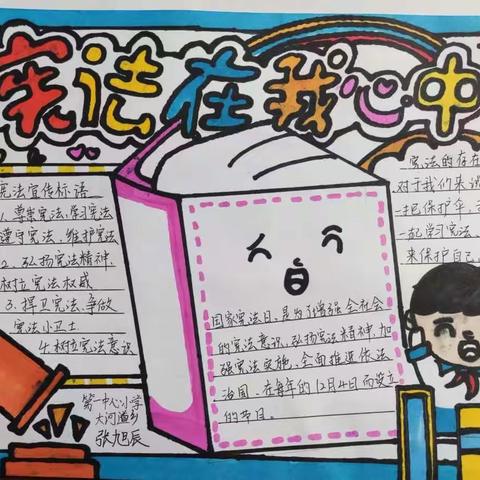 宪法在我心中
宪法宣传标语
1、尊崇宪法、学习宪法
遵守宪法、维护宪法
2、弘扬宪法精神、
树立宪法权威
3、捍卫宪法、争做
宪法小卫士
4、树立宪法意识
国家宪法日，是为了增强全社会
的宪法意识，弘扬宪法精神，加
强宪法实施，全面推进依法
治国，在每年的12月4日而设立
的节日。
宪法的存在
对于我们来说
一把保护伞，
一起学习宪法
来保护自己
第一中心小学
大河道乡
张旭辰